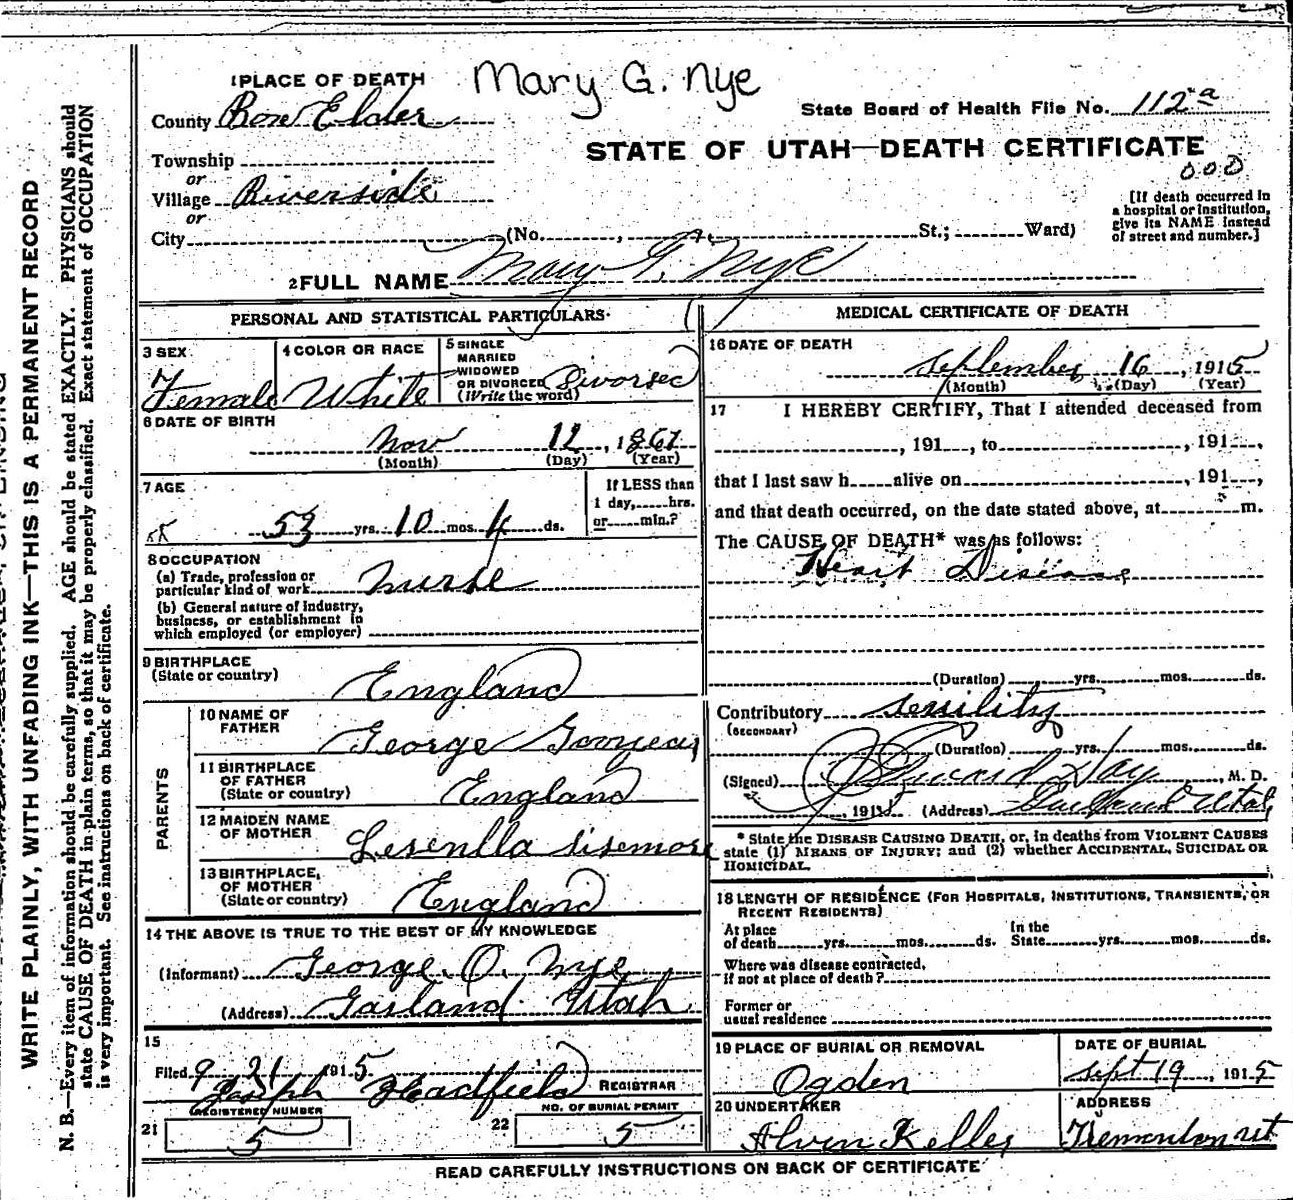 Mary G. Nye
1 PLACE OF DEATH
County Box Elder
State Board of Health File No. 112 a
STATE OF UTAH—DEATH CERTIFICATE
000
Township
or
Village Riverside
or
City (No. , St.; Ward)
[If death occurred in
a hospital or institution,
give its NAME instead
of street and number.]
2 FULL NAME Mary G. Nye
PERSONAL AND STATISTICAL PARTICULARS
3 SEX
Female
4 COLOR OR RACE
White
5 SINGLE
MARRIED
WIDOWED
OR DIVORCED
(Write the word)
Divorsed
6 DATE OF BIRTH
Nov 12, 1861
(Month) (Day) (Year)
7 AGE
53 yrs. 10 mos. 4 ds.
If LESS than
1 day, hrs.
or min.?
8 OCCUPATION
(a) Trade, profession or
particular kind of work Nurse
(b) General nature of industry,
business, or establishment in
which employed (or employer)
9 BIRTHPLACE
(State or country)
England
PARENTS
10 NAME OF
FATHER
George Gooyear
11 BIRTHPLACE
OF FATHER
(State or country)
England
12 MAIDEN NAME
OF MOTHER
Lesenlla Sisemore
13 BIRTHPLACE,
OF MOTHER
(State or country)
England
14 THE ABOVE IS TRUE TO THE BEST OF MY KNOWLEDGE
(Informant) George O. Nye
(Address) Garland Utah
15
Filed 9 21 1915
Joseph Hadfield REGISTRAR
REGISTERED NUMBER
21 5
NO. OF BURIAL PERMIT
22 5
MEDICAL CERTIFICATE OF DEATH
16 DATE OF DEATH
September 16, 1915
(Month) (Day) (Year)
17 I HEREBY CERTIFY, That I attended deceased from
, 191 , to , 191 ,
that I last saw h alive on , 191 ,
and that death occurred, on the date stated above, at m.
The CAUSE OF DEATH* was as follows:
Heart Disease
(Duration) yrs. mos. ds.
Contributory senility
(SECONDARY)
(Duration) yrs. mos. ds.
(Signed) Hay, M. D.
, 1915 (Address) Garland Utah
* State the DISEASE CAUSING DEATH, or, in deaths from VIOLENT CAUSES
state (1) MEANS OF INJURY; and (2) whether ACCIDENTAL, SUICIDAL OR
HOMICIDAL.
18 LENGTH OF RESIDENCE (FOR HOSPITALS, INSTITUTIONS, TRANSIENTS, OR
RECENT RESIDENTS)
At place
of death yrs. mos. ds.
In the
State yrs. mos. ds.
Where was disease contracted,
if not at place of death?
Former or
usual residence
19 PLACE OF BURIAL OR REMOVAL
Ogden
DATE OF BURIAL
Sept 19, 1915
20 UNDERTAKER
Alvin Keller
ADDRESS
Tremonton Ut
READ CAREFULLY INSTRUCTIONS ON BACK OF CERTIFICATE
WRITE PLAINLY, WITH UNFADING INK—THIS IS A PERMANENT RECORD
N. B.—Every item of information should be carefully supplied. AGE should be stated EXACTLY. PHYSICIANS should
state CAUSE OF DEATH in plain terms, so that it may be properly classified. Exact statement of OCCUPATION
is very important. See instructions on back of certificate.